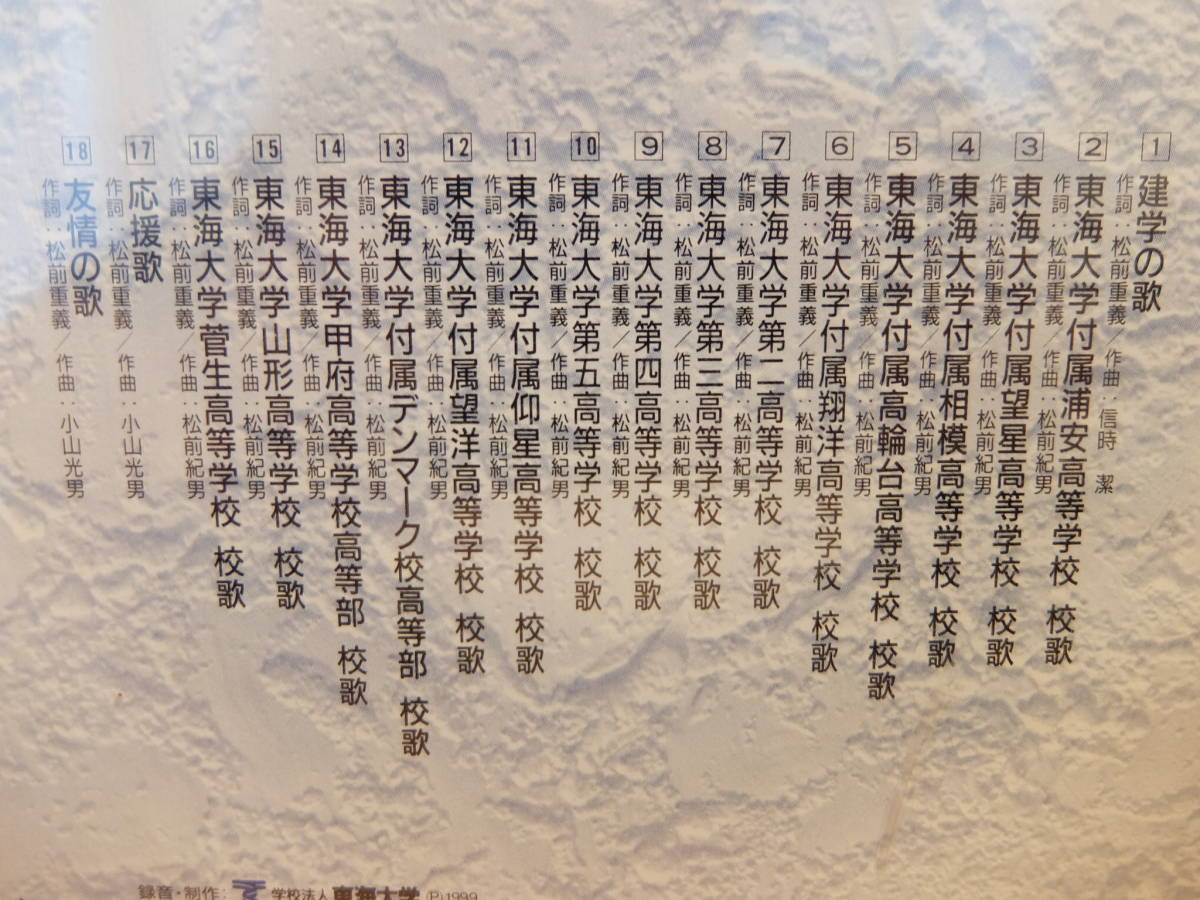 1 建学の歌
作詞:松前重義/作曲:信時 潔
2 東海大学付属浦安高等学校 校歌
作詞:松前重義/作曲:松前紀男
3 東海大学付属望星高等学校 校歌
作詞:松前重義/作曲:松前紀男
4 東海大学付属相模高等学校 校歌
作詞:松前重義/作曲:松前紀男
5 東海大学付属高輪台高等学校 校歌
作詞:松前重義/作曲:松前紀男
6 東海大学付属翔洋高等学校 校歌
作詞:松前重義/作曲:松前紀男
7 東海大学第二高等学校 校歌
作詞:松前重義/作曲:松前紀男
8 東海大学第三高等学校 校歌
作詞:松前重義/作曲:松前紀男
9 東海大学第四高等学校 校歌
作詞:松前重義/作曲:松前紀男
10 東海大学第五高等学校 校歌
作詞:松前重義/作曲:松前紀男
11 東海大学付属仰星高等学校 校歌
作詞:松前重義/作曲:松前紀男
12 東海大学付属望洋高等学校 校歌
作詞:松前重義/作曲:松前紀男
13 東海大学付属デンマーク校高等部 校歌
作詞:松前重義/作曲:松前紀男
14 東海大学甲府高等学校高等部 校歌
作詞:松前重義/作曲:松前紀男
15 東海大学山形高等学校 校歌
作詞:松前重義/作曲:松前紀男
16 東海大学菅生高等学校 校歌
作詞:松前重義/作曲:松前紀男
17 応援歌
作詞:松前重義/作曲:小山光男
18 友情の歌
作詞:松前重義/作曲:小山光男
録音・制作: 学校法人 東海大学 (P)1999